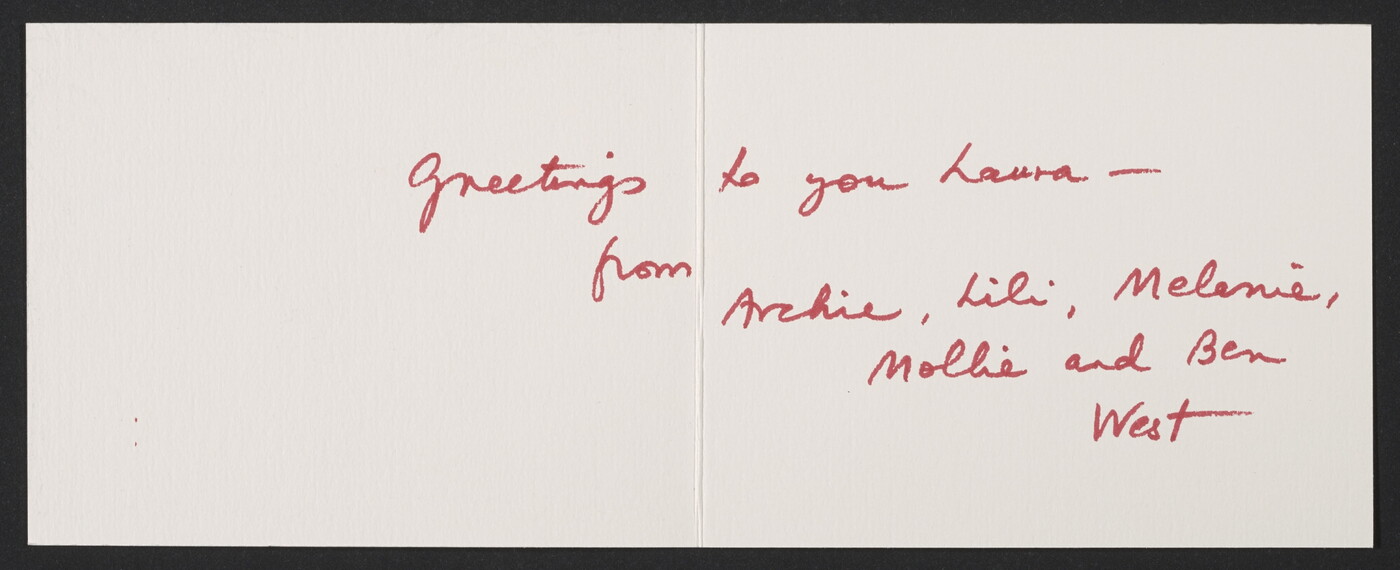 Greetings to you Laura —
from
Archie, Lili, Melanie,
Mollie and Ben
West